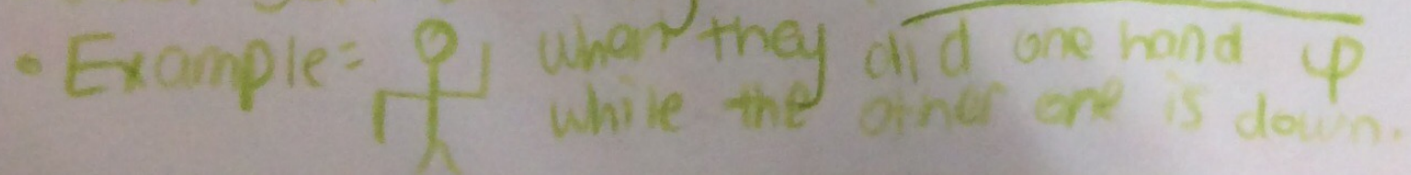 • Example= when they did one hand up
while the other one is down.